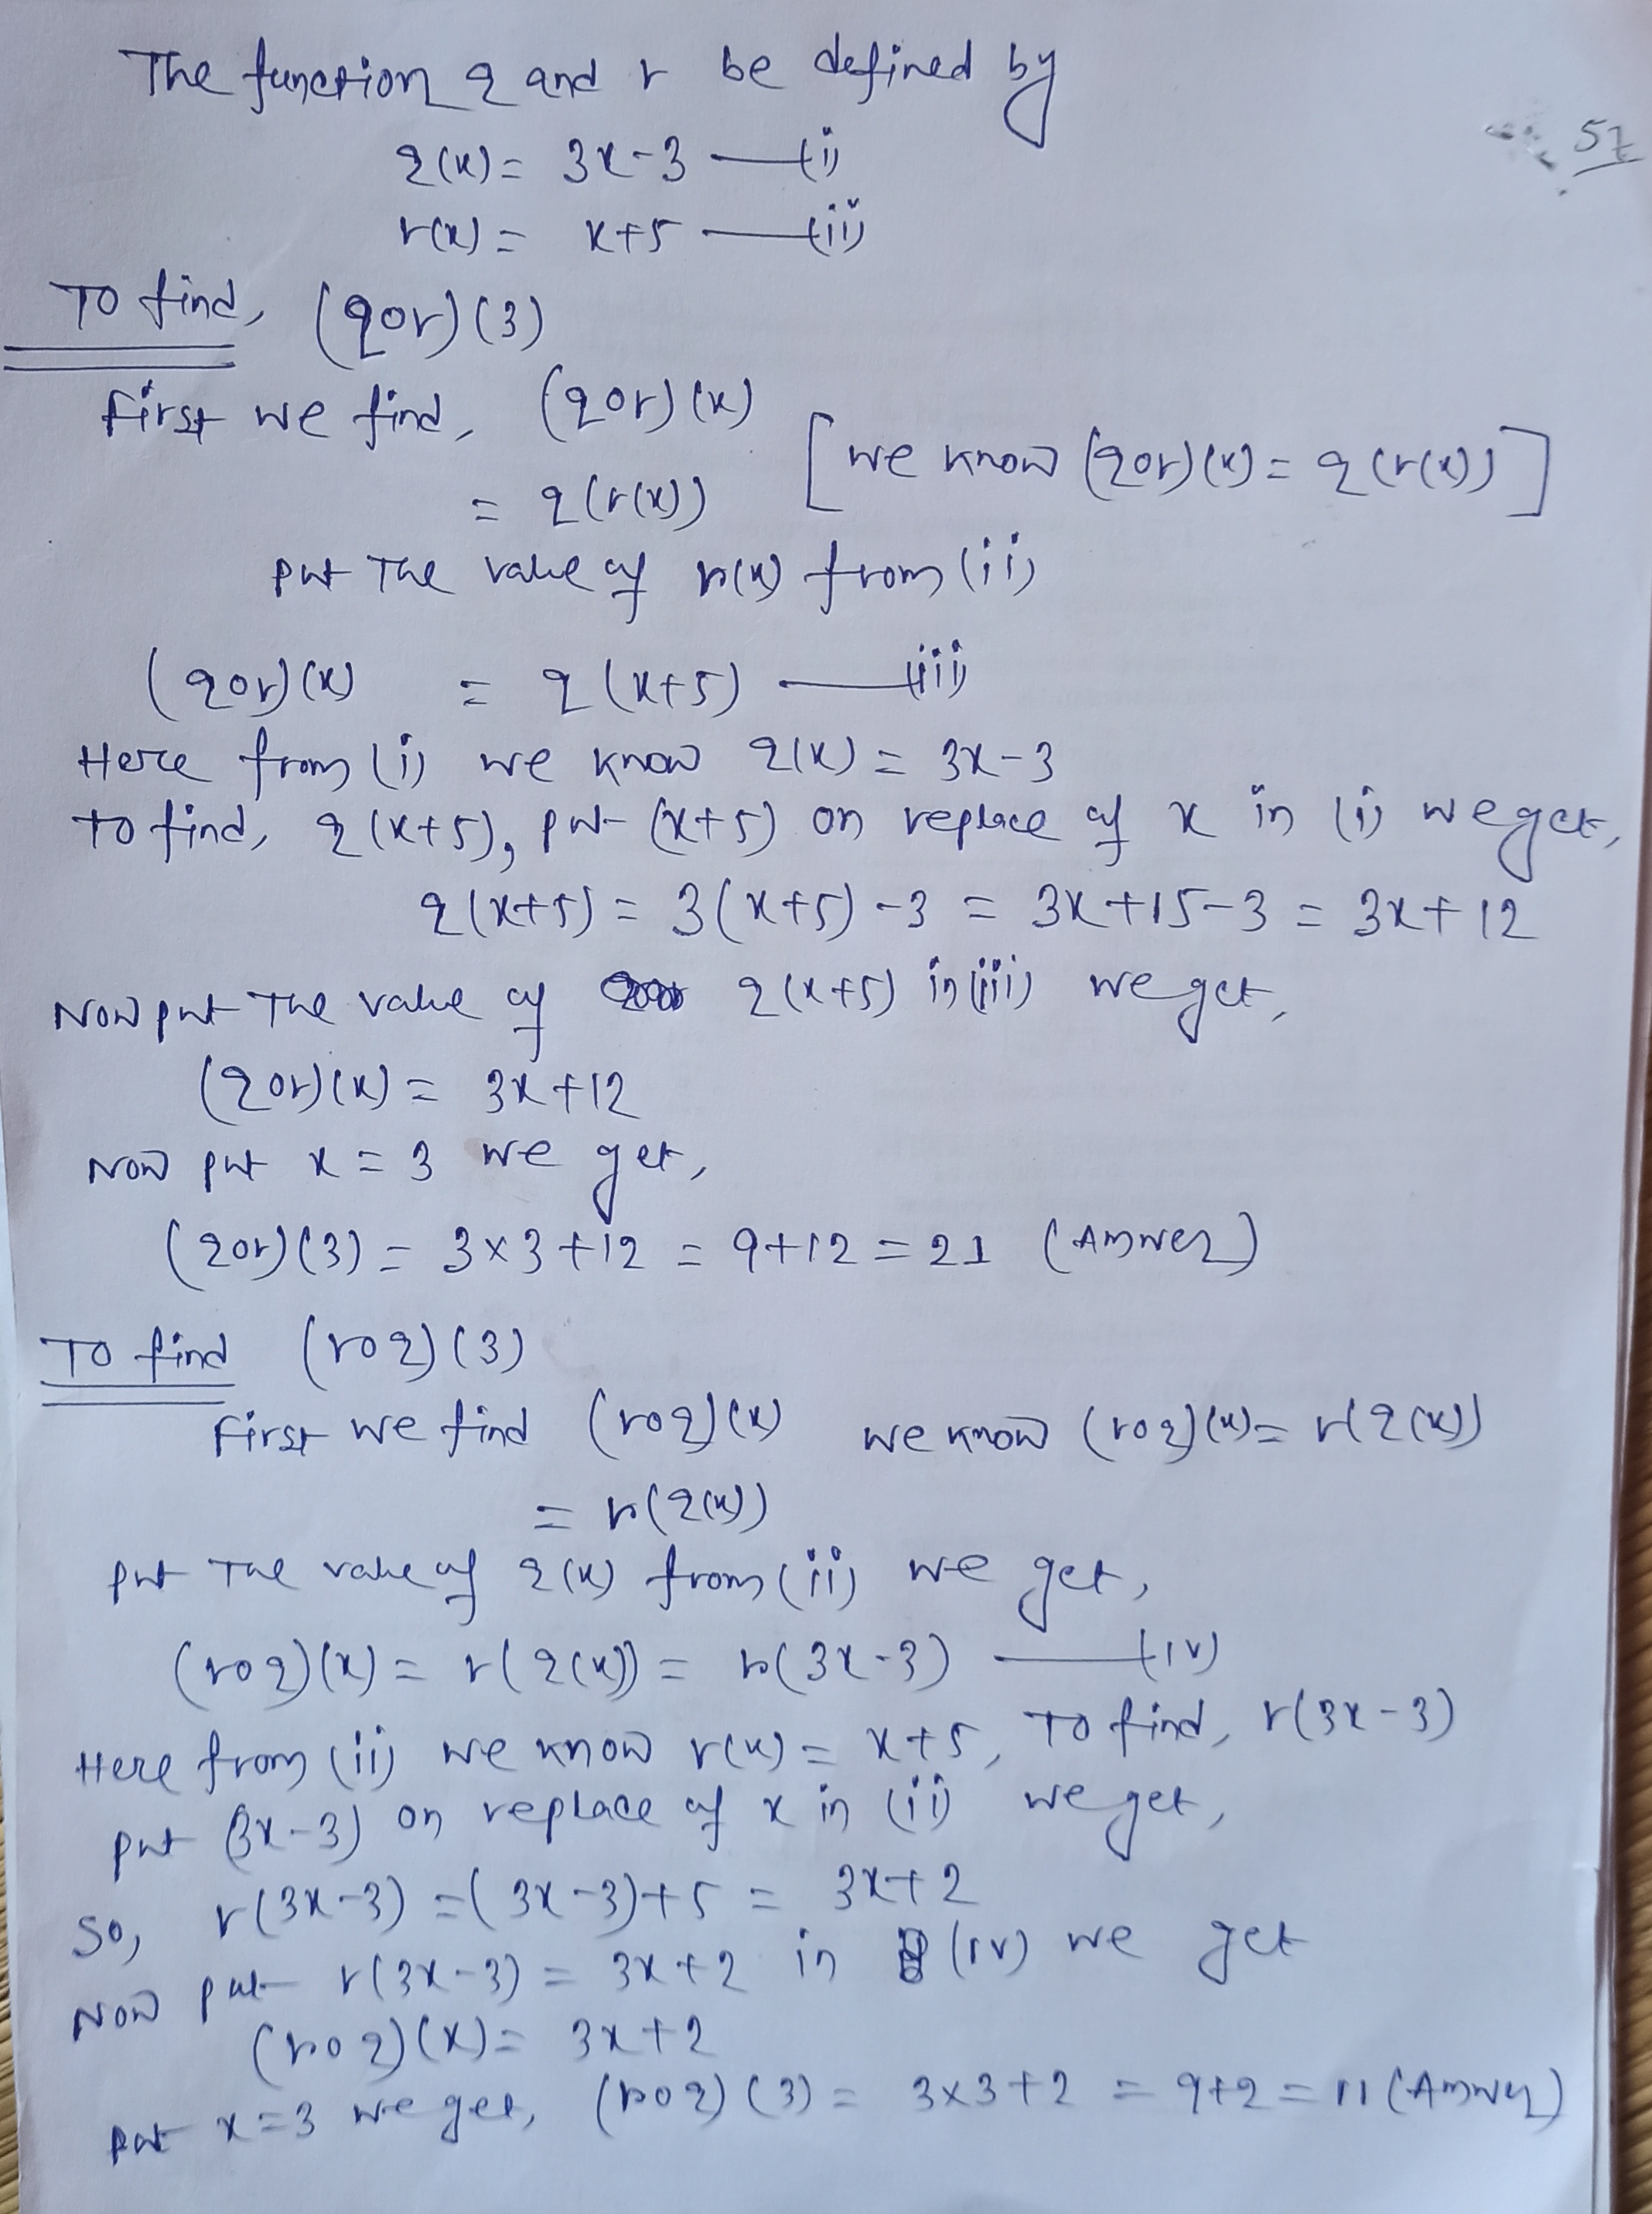 The function q and r be defined by
57
q(x) = 3x-3 —(i)
r(x) = x+5 —(ii)
To find, (qor)(3)
First we find, (qor)(x)
= q(r(x)) [we know (qor)(x) = q(r(x))]
put The value of r(x) from (ii)
(qor)(x) = q(x+5) —(iii)
Here from (i) we know q(x) = 3x-3
to find, q(x+5), put (x+5) on replace of x in (i) we get,
q(x+5) = 3(x+5)-3 = 3x+15-3 = 3x+12
Now put The value of q(x+5) in (iii) we get,
(qor)(x) = 3x+12
Now put x = 3 we get,
(qor)(3) = 3×3+12 = 9+12 = 21 (Answer)
To find (roq)(3)
First we find (roq)(x) we know (roq)(x) = r(q(x))
= r(q(x))
put The value of q(x) from (ii) we get,
(roq)(x) = r(q(x)) = r(3x-3) —(iv)
Here from (ii) we know r(x) = x+5, To find, r(3x-3)
put (3x-3) on replace of x in (ii) we get,
So, r(3x-3) = (3x-3)+5 = 3x+2
Now put r(3x-3) = 3x+2 in (iv) we get
(roq)(x) = 3x+2
Put x=3 we get, (roq)(3) = 3×3+2 = 9+2 = 11 (Answer)